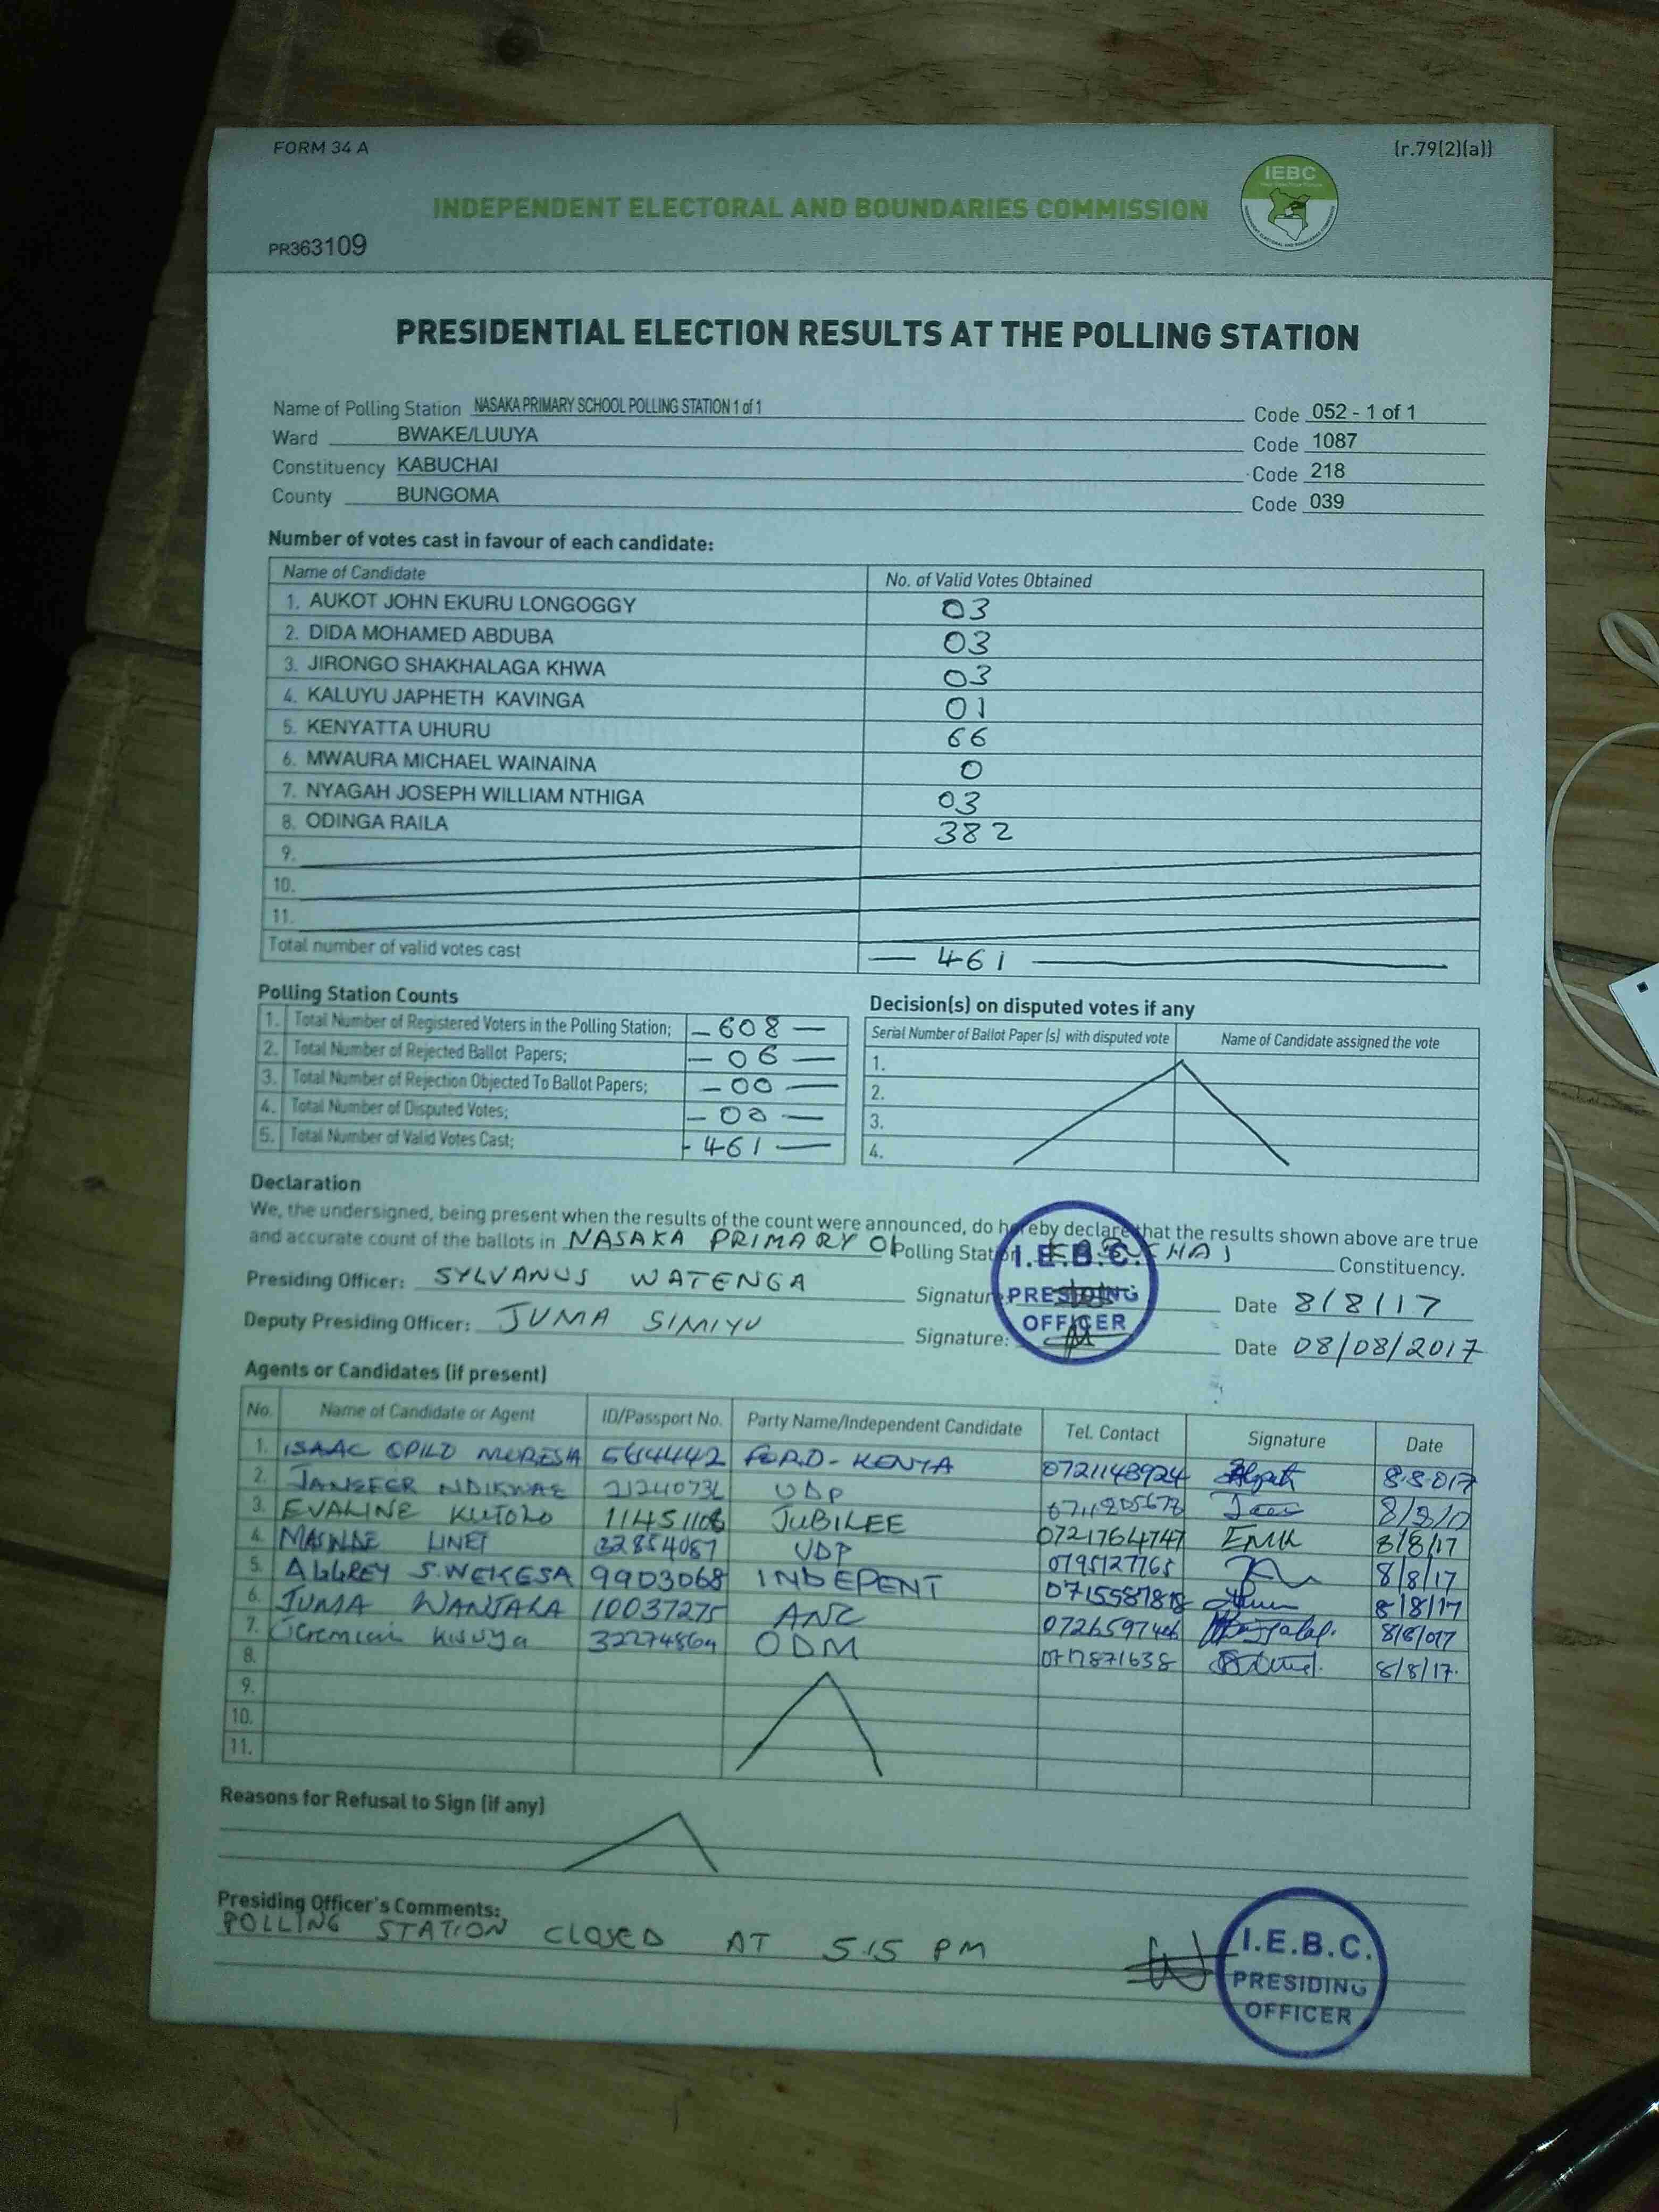 FORM 34 A
(r.79(2)(a))
IEBC
INDEPENDENT ELECTORAL AND BOUNDARIES COMMISSION
PR363109
PRESIDENTIAL ELECTION RESULTS AT THE POLLING STATION
Name of Polling Station NASAKA PRIMARY SCHOOL POLLING STATION 1 of 1 Code 052 - 1 of 1
Ward BWAKE/LUUYA Code 1087
Constituency KABUCHAI Code 218
County BUNGOMA Code 039
Number of votes cast in favour of each candidate:
Name of Candidate No. of Valid Votes Obtained
1. AUKOT JOHN EKURU LONGOGGY 03
2. DIDA MOHAMED ABDUBA 03
3. JIRONGO SHAKHALAGA KHWA 03
4. KALUYU JAPHETH KAVINGA 01
5. KENYATTA UHURU 66
6. MWAURA MICHAEL WAINAINA 0
7. NYAGAH JOSEPH WILLIAM NTHIGA 03
8. ODINGA RAILA 382
9.
10.
11.
Total number of valid votes cast 461
Polling Station Counts
1. Total Number of Registered Voters in the Polling Station; 608
2. Total Number of Rejected Ballot Papers; 06
3. Total Number of Rejection Objected To Ballot Papers; 00
4. Total Number of Disputed Votes; 00
5. Total Number of Valid Votes Cast; 461
Decision(s) on disputed votes if any
Serial Number of Ballot Paper (s) with disputed vote Name of Candidate assigned the vote
1.
2.
3.
4.
Declaration
We, the undersigned, being present when the results of the count were announced, do hereby declare that the results shown above are true
and accurate count of the ballots in NASAKA PRIMARY 01 Polling Station Constituency.
I.E.B.C.
PRESIDING
OFFICER
Presiding Officer: SYLVANUS WATENGA Signature: Date 8/8/17
Deputy Presiding Officer: JUMA SIMIYU Signature: Date 08/08/2017
Agents or Candidates (if present)
No. Name of Candidate or Agent ID/Passport No. Party Name/Independent Candidate Tel. Contact Signature Date
1. ISAAC FORD-KENYA 0721148924 8.8.017
2. UDP
3. EVALINE JUBILEE 0721764747 8/8/17
4. LINET UDP 0795127765 8/8/17
5. AGGREY S.WEKESA 9903068 INDEPENT 8/8/17
6. JUMA WANJALA 10037275 ANC 8/8/017
7. ODM 8/8/17.
8.
9.
10.
11.
Reasons for Refusal to Sign (if any)
Presiding Officer's Comments:
POLLING STATION CLOSED AT 5.15 PM
I.E.B.C.
PRESIDING
OFFICER